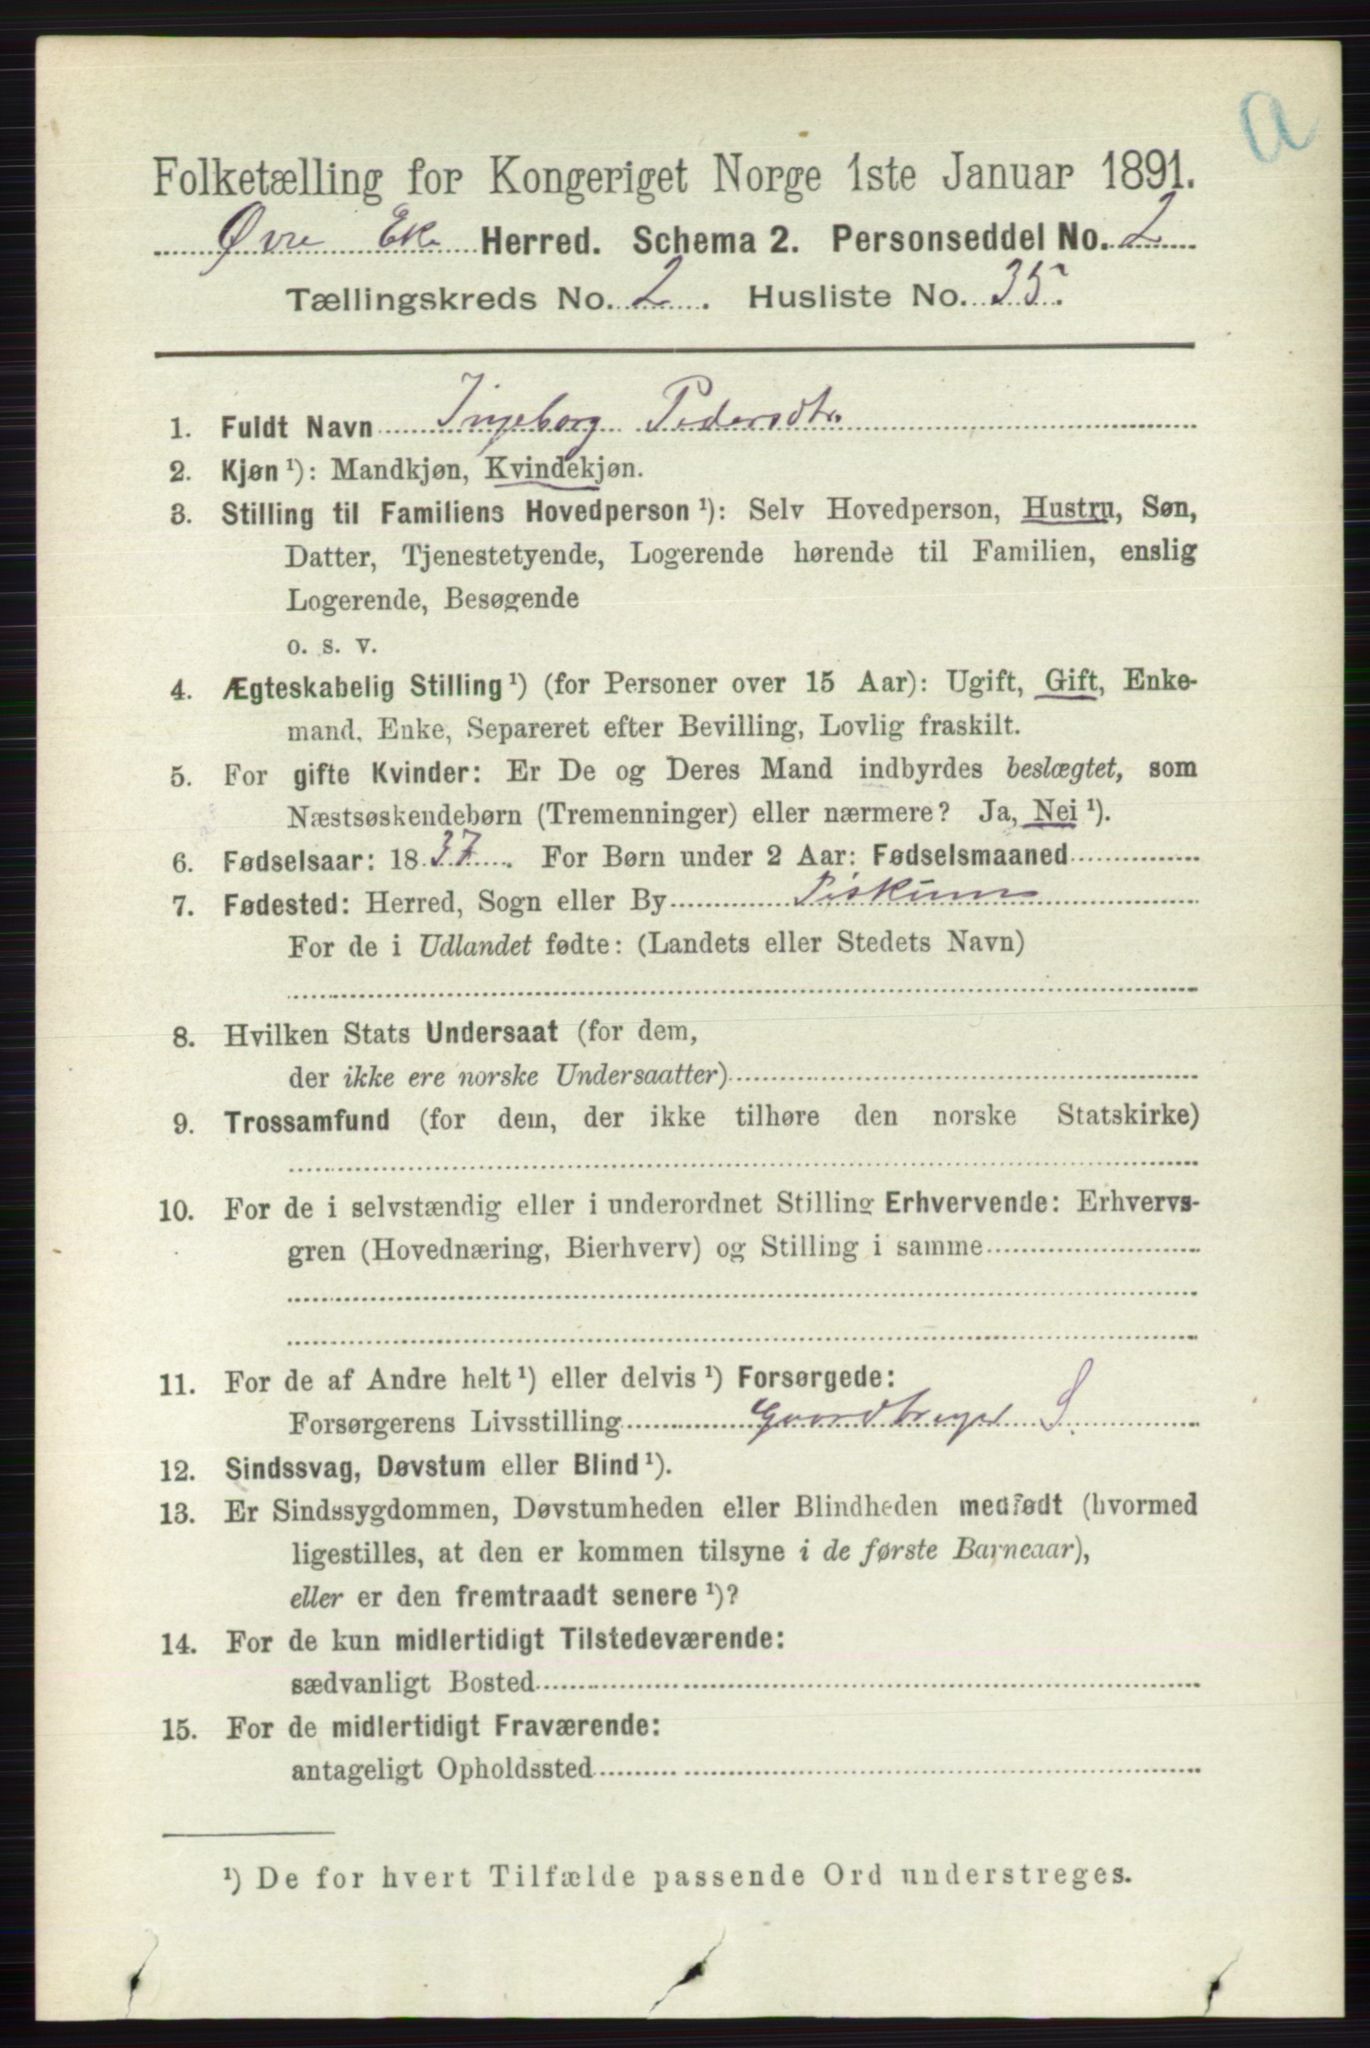 a
Folketælling for Kongeriget Norge 1ste Januar 1891.
Øvre Eker Herred. Schema 2. Personseddel No. 2
Tællingskreds No. 2. Husliste No. 35.
1. Fuldt Navn Ingeborg Pedersdtr.
2. Kjøn ¹): Mandkjøn, Kvindekjøn.
3. Stilling til Familiens Hovedperson ¹): Selv Hovedperson, Hustru, Søn,
Datter, Tjenestetyende, Logerende hørende til Familien, enslig
Logerende, Besøgende
o. s. v.
4. Ægteskabelig Stilling ¹) (for Personer over 15 Aar): Ugift, Gift, Enke-
mand, Enke, Separeret efter Bevilling, Lovlig fraskilt.
5. For gifte Kvinder: Er De og Deres Mand indbyrdes beslægtet, som
Næstsøskendebørn (Tremenninger) eller nærmere? Ja, Nei ¹).
6. Fødselsaar: 1837. For Børn under 2 Aar: Fødselsmaaned
7. Fødested: Herred, Sogn eller By Fiskum
For de i Udlandet fødte: (Landets eller Stedets Navn)
8. Hvilken Stats Undersaat (for dem,
der ikke ere norske Undersaatter)
9. Trossamfund (for dem, der ikke tilhøre den norske Statskirke)
10. For de i selvstændig eller i underordnet Stilling Erhvervende: Erhvervs-
gren (Hovednæring, Bierhverv) og Stilling i samme
11. For de af Andre helt ¹) eller delvis ¹) Forsørgede:
Forsørgerens Livsstilling Gaardbruger S.
12. Sindssvag, Døvstum eller Blind ¹).
13. Er Sindssygdommen, Døvstumheden eller Blindheden medfødt (hvormed
ligestilles, at den er kommen tilsyne i de første Barneaar),
eller er den fremtraadt senere ¹)?
14. For de kun midlertidigt Tilstedeværende:
sædvanligt Bosted
15. For de midlertidigt Fraværende:
antageligt Opholdssted
¹) De for hvert Tilfælde passende Ord understreges.